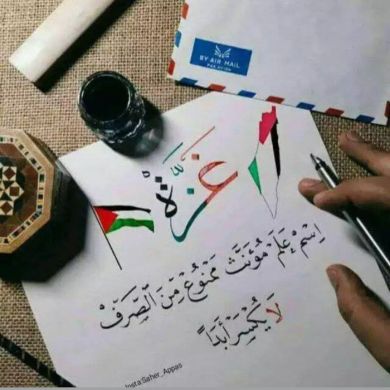 BY AIR MAIL
PAR AVION
غَزَّة
اِسْمُ عَلَمٍ مُؤَنَّث مَمْنُوعٌ مِنَ الصَّرَفْ
لَا يُكْسَر أَبَدَاً
Insta:Saher_Appas